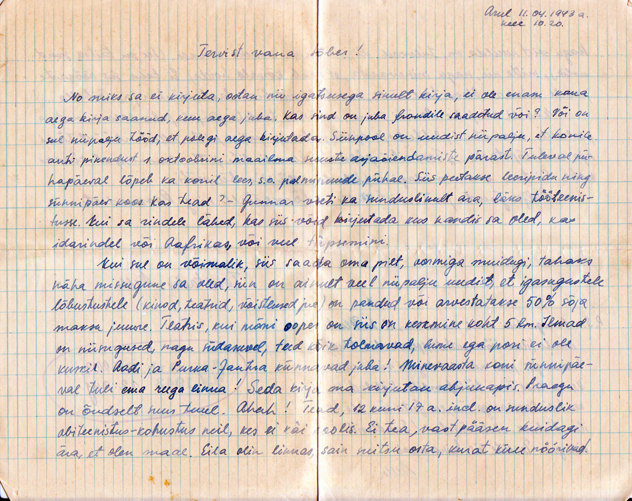 Arul 11.04.1943 a.
kell 10.20.
Tervist vana sõber!
No miks sa ei kirjuta, ootan nii igatsusega sinult kirja, ei ole enam kaua
aega kirja saanud, kuu aega juba. Kas sind on juba frondile saadetud või? Või on
sul niipalju tööd, et polegi aega kirjutada. Siinpool on uudist niipalju, et Konile
anti pikendust 1. oktoobrini maailma asjaõiendamiste pärast. Tuleval pü-
hapäeval lõpeb ka Konil leer, s.o. palmipuude pühal. Siis peetakse leeripidu ning
sünnipäev koos. Kas tead? – Gunnar veeti ka sunduslikult ära, läks tööteenis-
tusse. Kui sa rindele lähed, kas siis võid kirjutada kus kandis sa oled, kas
idarindel või Aafrikas, või veel täpsemini.
Kui sul on võimalik, siis saada oma pilt, vormiga muidugi, tahaks
näha missugune sa oled, siin on ainult veel niipalju uudist, et igasugustele
lõbustustele (kinod, teatrid, võistlused jne) on pandud või arvestatakse 50% sõja
maksu juurde. Teatris, kui mõni ooper on siis on keskmine koht 5 km. Ilmad
on niisugused, nagu südasuvel, teed kõik tolmavad, lume ega pori ei ole
kuskil. Aadi ja Purna-Jantsa künnavad juba! Minevaasta Koni sünnipäe-
val tuli ema reega linna! Seda kirja ma kirjutan ahjuaugis. Praegu
on õudselt suur tuul. Ahah! Tead, 12 kuni 17 a. incl. on sunduslik
abiteenistus-kohustus neil, kes ei käi koolis. Ei tea, vast pääsen kuidagi
ära, et olen maal. Eila olin linnas, sain mütsi osta, kurat küll nöörivad.